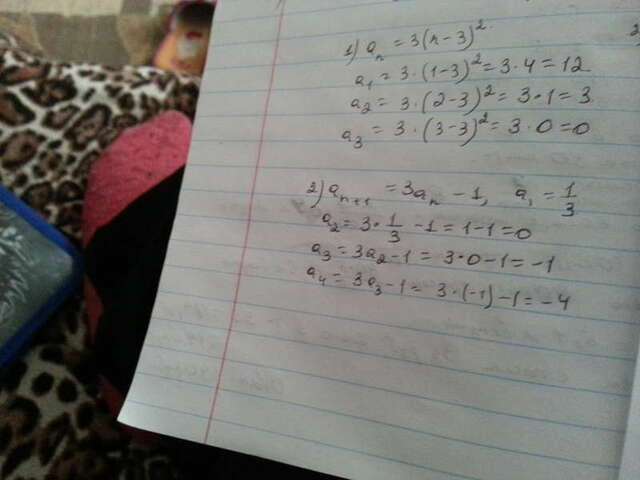 1) aₙ = 3(n-3)²
a₁ = 3·(1-3)² = 3·4 = 12
a₂ = 3·(2-3)² = 3·1 = 3
a₃ = 3·(3-3)² = 3·0 = 0
2) aₙ₊₁ = 3aₙ - 1, a₁ = 1/3
a₂ = 3·1/3 - 1 = 1-1 = 0
a₃ = 3a₂-1 = 3·0-1 = -1
a₄ = 3a₃-1 = 3·(-1)-1 = -4